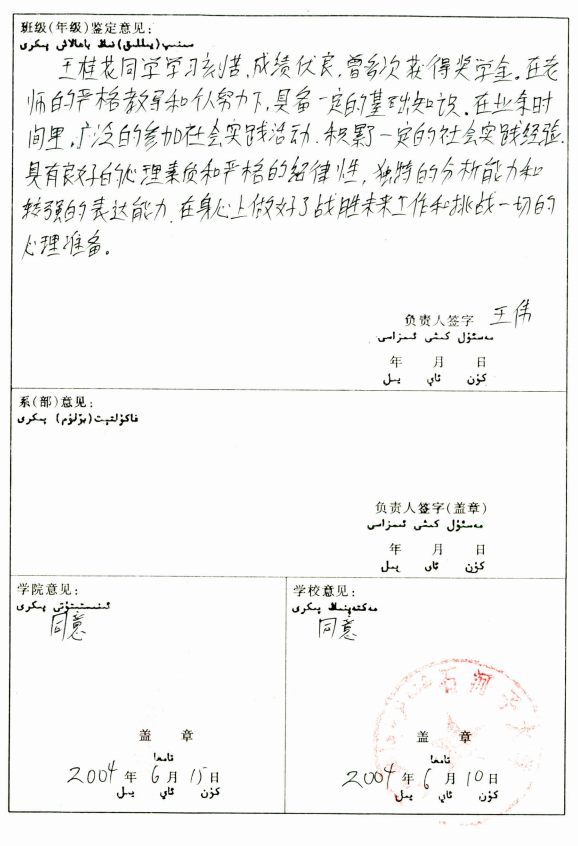 班级(年级)鉴定意见:
سىنىپ(يىللىق)نىڭ باھالاش پىكرى
王桂花同学学习刻苦,成绩优良,曾多次获得奖学金。在老
师的严格教导和个人努力下,具备一定的基础知识。在业余时
间里,广泛的参加社会实践活动.积累一定的社会实践经验.
具有良好的心理素质和严格的纪律性,独特的分析能力和
较强的表达能力.在身心上做好了战胜未来工作和挑战一切的
心理准备。
负责人签字 王伟
مەسئۇل كىشى ئىمزاسى
年 月 日
يىل ئاي كۈن
系(部)意见:
فاكۇلتېت(بۆلۈم) پىكرى
负责人签字(盖章)
مەسئۇل كىشى ئىمزاسى
年 月 日
يىل ئاي كۈن
学院意见:
ئىنستىتۇتى پىكرى
同意
盖 章
تامغا
2004年6月15日
يىل ئاي كۈن
学校意见:
مەكتەپنىڭ پىكرى
同意
石河子大
盖 章
تامغا
2004年6月10日
يىل ئاي كۈن